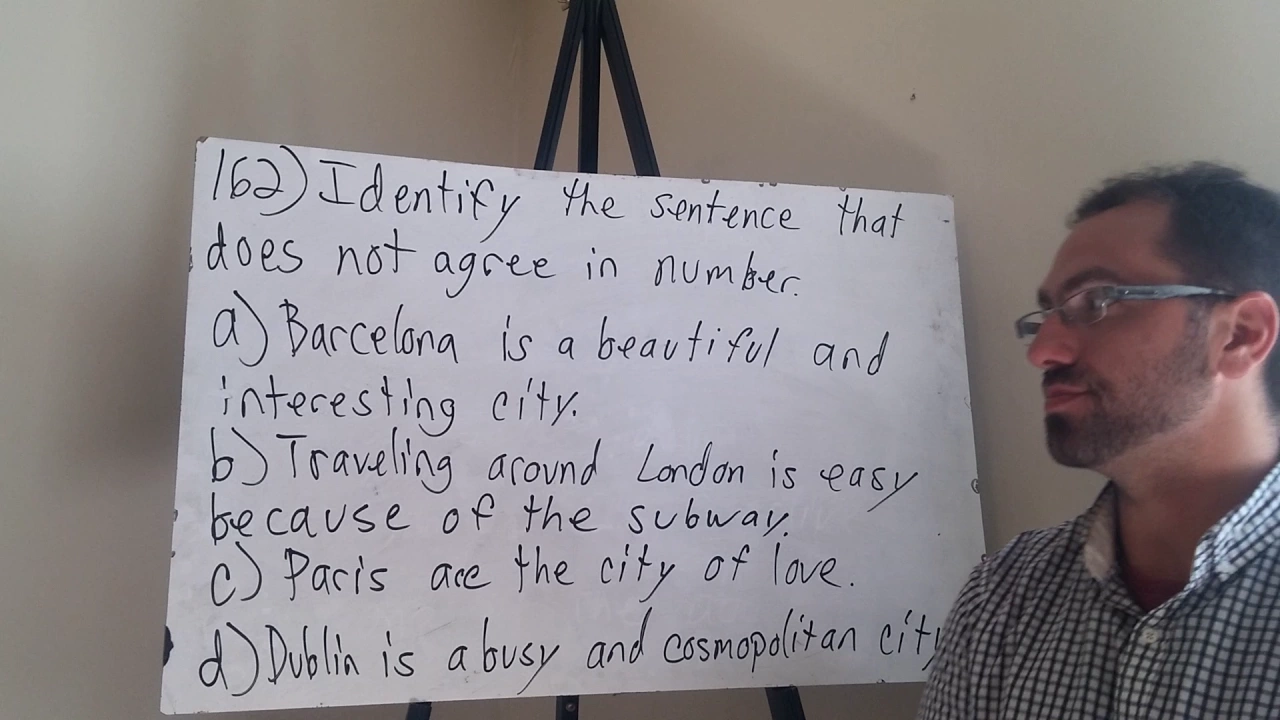 162) Identify the sentence that
does not agree in number.
a) Barcelona is a beautiful and
interesting city.
b) Traveling around London is easy
because of the subway.
c) Paris are the city of love.
d) Dublin is a busy and cosmopolitan city